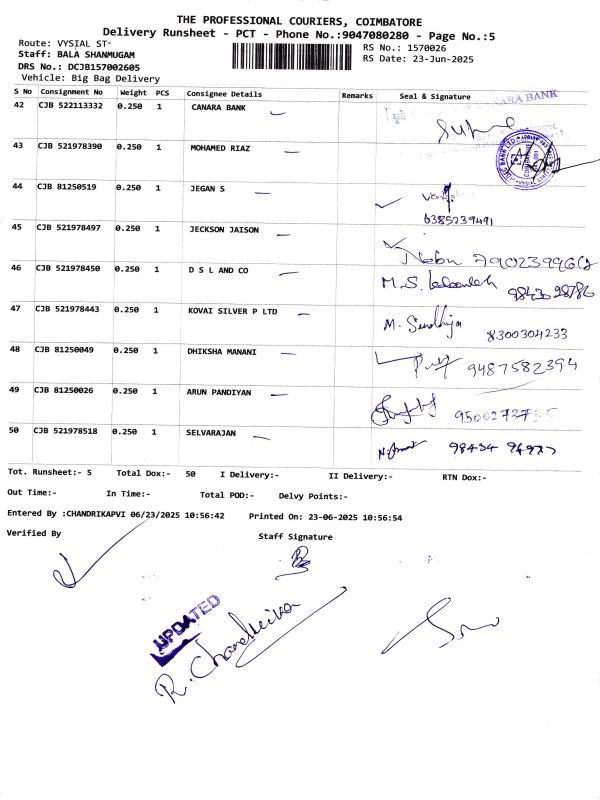 THE PROFESSIONAL COURIERS, COIMBATORE
Delivery Runsheet - PCT - Phone No.:9047080280 - Page No.:5
Route: VYSIAL ST
Staff: BALA SHANMUGAM
RS No.: 1570026
DRS No.: DCJB157002605
RS Date: 23-Jun-2025
Vehicle: Big Bag Delivery
S No Consignment No Weight PCS Consignee Details Remarks Seal & Signature
42 CJB 522113332 0.250 1 CANARA BANK
CANARA BANK
43 CJB 521978390 0.250 1 MOHAMED RIAZ
44 CJB 81250519 0.250 1 JEGAN S
6385239491
45 CJB 521978497 0.250 1 JECKSON JAISON
46 CJB 521978450 0.250 1 D S L AND CO
M.S.
47 CJB 521978443 0.250 1 KOVAI SILVER P LTD
M. Sendhija 8300304233
48 CJB 81250049 0.250 1 DHIKSHA MANANI
9487582394
49 CJB 81250026 0.250 1 ARUN PANDIYAN
50 CJB 521978518 0.250 1 SELVARAJAN
Tot. Runsheet:- 5 Total Dox:- 50 I Delivery:- II Delivery:- RTN Dox:-
Out Time:- In Time:- Total POD:- Delvy Points:-
Entered By :CHANDRIKAPVI 06/23/2025 10:56:42 Printed On: 23-06-2025 10:56:54
Verified By Staff Signature
UPDATED
R. Chandrika